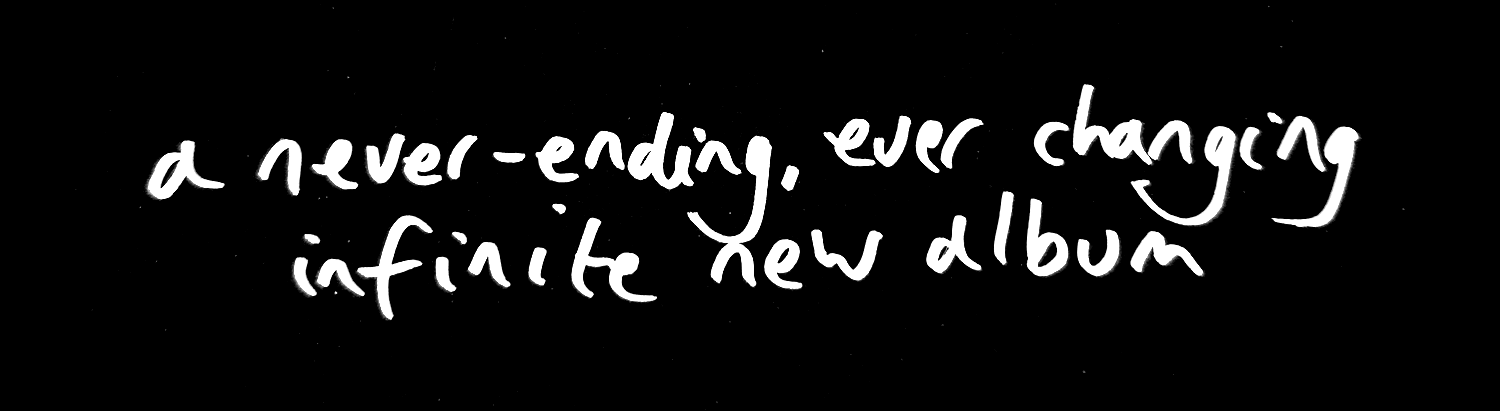 a never-ending, ever changing
infinite new album